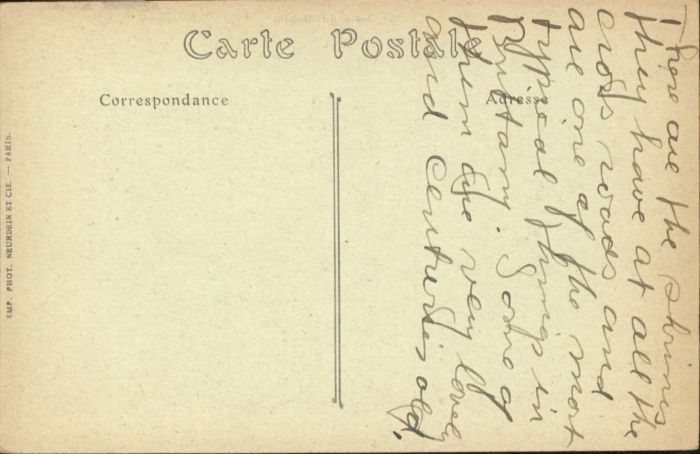 Carte Postale
Correspondance
Adresse
IMP. PHOT. NEURDEIN ET CIE. — PARIS.
These are the shrines
they have at all the
cross roads and
are one of the most
typical things in
Brittany. Some of
them are very lovely
and centuries old.